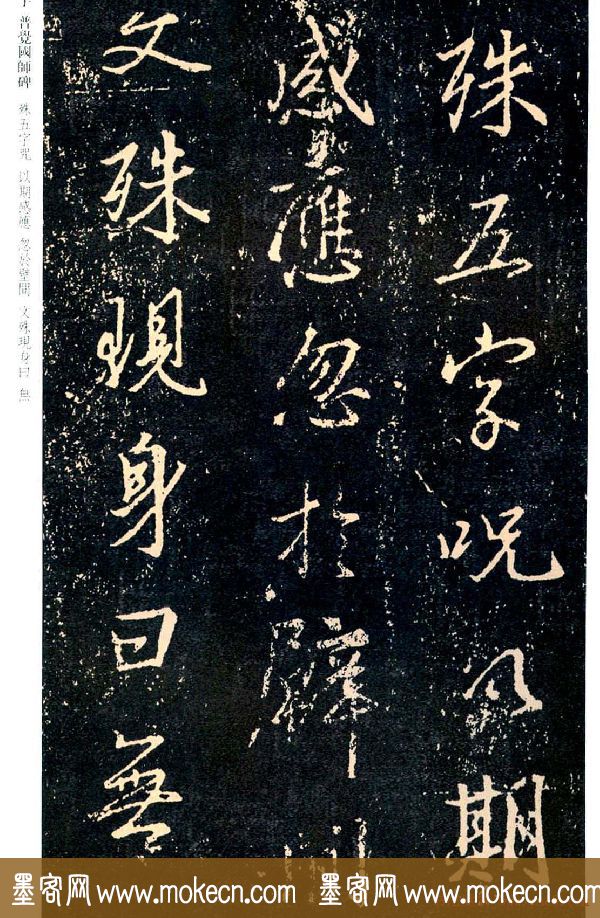 殊五字呪以期
感應忽於壁間
文殊現身曰無
普覺國師碑 殊五字呪 以期感應 忽於壁間 文殊現身曰 無
墨客网 www.mokecn.com 墨客网 www.mokecn.com